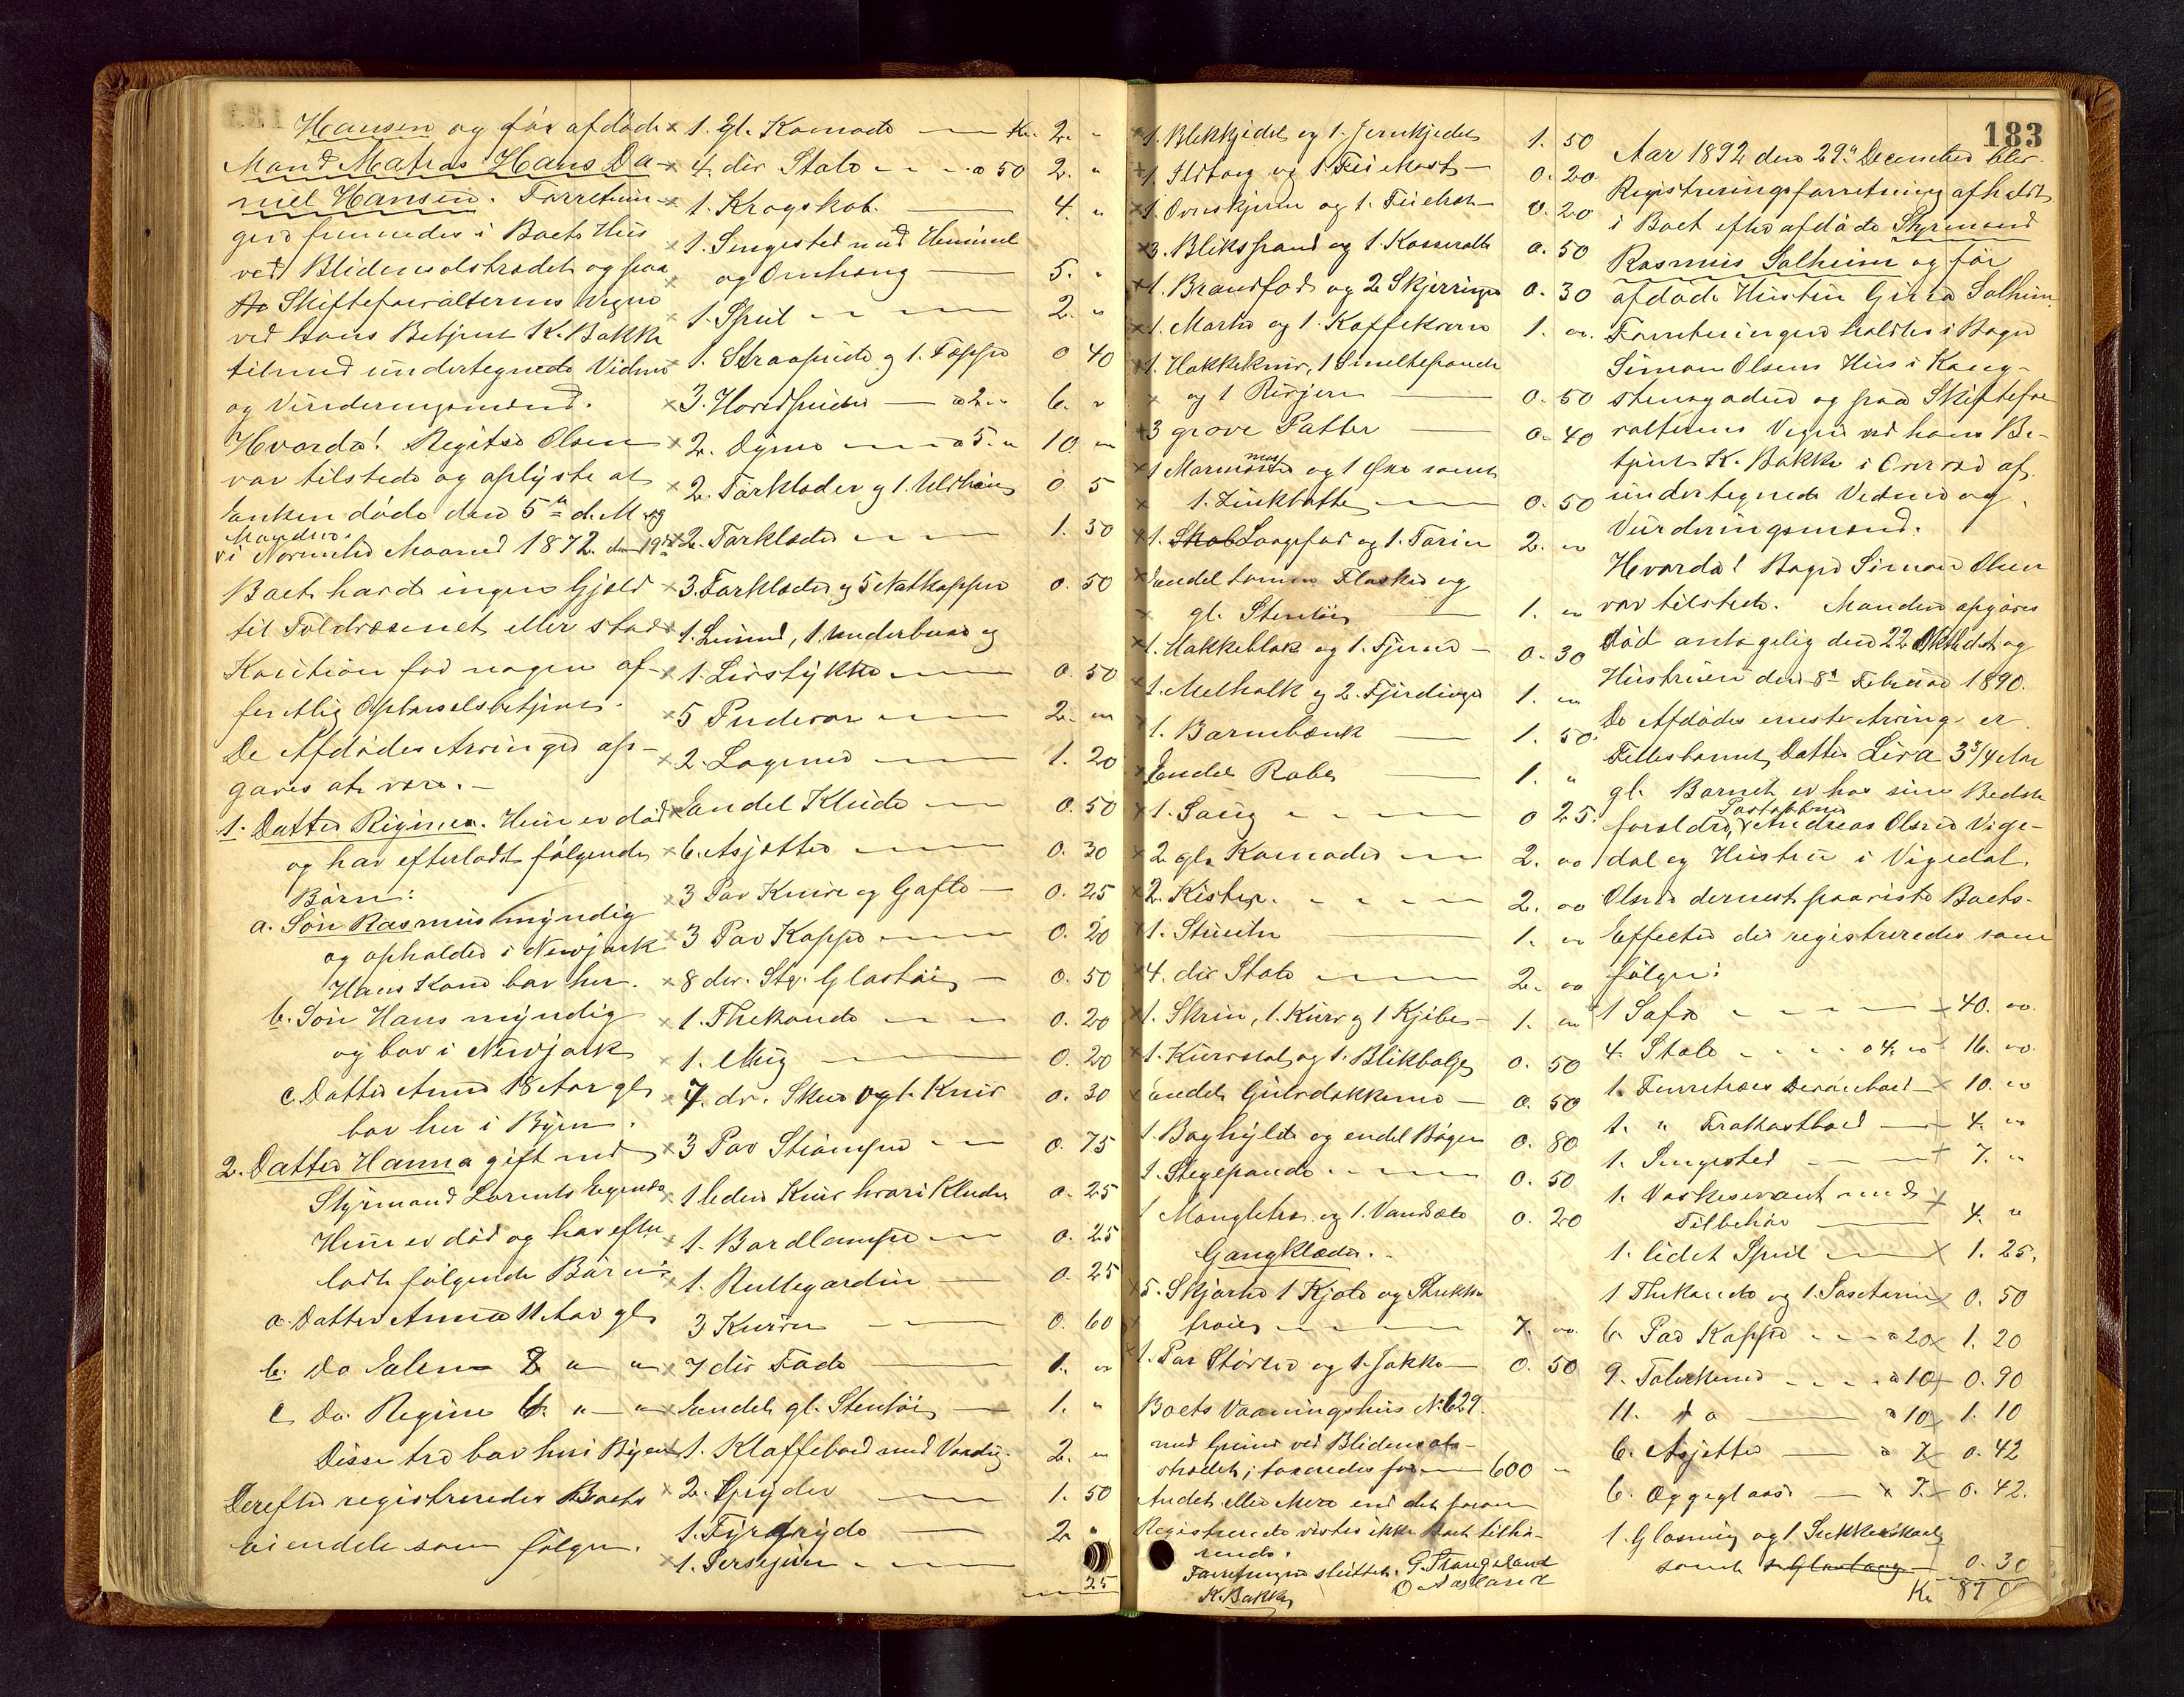 Hansen og før afdøde
Mand Matros Hans Da-
niel Hansen. Forretnin-
gen fremmedes i Boets Hus
ved Blidensolstrædet og paa
Skifteforvalterens Vegne
ved hans Betjent K. Bakke
tilmed undertegnede Vidner
og Vurderingsmænd.
Hvorda! Regitse Olsen
var tilstede og oplyste at
Enken døde den 5te d. M. og
Manden
i November Maaned 1872. den 19de
Boet havde ingen Gjæld
til Toldvæsenet eller stod i
Kaution for nogen of-
fentlig Opbørselsbetjent.
De Afdødes Arvinger op-
gaves at være. -
1. Datter Regine. Hun er død
og har efterladt følgende
Børn:
a. Søn Rasmus myndig
og opholder i Newjork
Hans Kone bor her.
b. Søn Hans myndig
og bor i Newjork
c. Datter Anne 18 Aar gl.
bor her i Byen.
2. Datter Hanna gift med
Styrmand Lorents
Hun er død og har efter
ladt følgende Børn:
a. Datter Anna 11 Aar gl.
b. Do Elen 8 " "
c Do. Regine 6. " - "
Disse tre bor her i Byen
Derefter registreredes Boets
eiendele som følger.
1. gl. Komode — Kr. 2. "
4. div Stole - - - a 50 2. "
1. Krogskab. — 4. "
1. Sengested med Himmel
og Omhæng — 5. "
1. Speil — 2. "
1. Straapude og 1. Tæppe 0 40
3. Hovedpuder — a 2. " 6. "
2. Dyner — a 5. " 10. "
2. Tørklæder og 1. Uldhue 0. 5
2. Tørklæder — 1. 50
3. Tørklæder og 5 Natkapper 0. 50
1. Linned, 1. Underbuxe og
1. Livstykke — 0. 50
5 Pudevar — 2. "
2. Lagener — 1. 20
Endel Klude — 0. 50
6. Asjetter — 0. 30
3 Par Knive og Gafle — 0. 25
3 Par Kopper — 0. 20
8 div. Stk. Glastøi — 0. 50
1. Thekande — 0. 20
1. Mug — 0. 20
7. div. Skeer og 1. Kniv 0. 30
3 Par Strømper — 0. 75
1 liden Kurv hvori Klude 0. 25
1. Bordlampe — 0. 25
1. Rullegardin — 0. 25
3 Kurve — 0. 60
7 div Fade — 1. "
Endel gl. Stentøi — 1. "
1. Klaffebord med Voxdug. 2. "
2. Gryder — 1. 50
1. Fyrgryde — 2. "
1. Persejern -
25
1. Blikkjedel og 1. Jernkjedel 1. 50
1. Ildtang og 1 Feiekost — 0. 20
1. Ovnskjerm og 1. Feiebræt — 0. 20
3. Blikspand og 1. Kasserolle 0. 50
1. Brandfad og 2 Skjerringer 0. 30
1. Morter og 1. Kaffekværn 1. "
1. Hakkekniv, 1 Smeltepande
og 1 Rivjern — 0. 50
3 grove Potter — 0. 40
og 1 Øxe samt
1. Zinkbøtte — 0. 50
1. Skab Laagefad og 1. Tærin 2. "
Endel tomme Flasker og
gl. Stentøi — 1. "
1. Hakkeblok og 1. Fjerding — 0. 30
1. Melholk og 2. Fjerdinger 1. "
1. Barnebænk — 1. 50
Endel Raber — 1. "
1. Saug — 0 25.
2. gl. Komoder — 2. oo
2. Kister. — 2. oo
1. Stueuhr — 1. "
4. div Stole — 2. oo
1. Skrin, 1. Kurv og 1 Kjibe — 1. "
1. Kurvstol og 1. Blikbalje 0. 50
Endel Gulvdækkener — 0. 50
1. Boghylde og endel Bøger 0. 80
1. Stegepande — 0. 50
1 Mangletræ og 1. Vandsæle 0. 20
Gangklæder. -
5. Skjørter 1 Kjole og Strikke
trøie — 7. oo.
1. Par Støvler og 1. Jakke — 0. 50
Boets Vaaningshus No 629.
med Grund ved Blidensols-
strædet, taxeredes for — 600 "
Andet eller mere end det foran
Registrerede vistes ikke Boet tilhø-
rende.
Forretningen sluttet. G. Stangeland
K. Bakke O Aasland
183
Aar 1892 den 29de December blev
Registreringsforretning afholdt
i Boet efter afdøde Styrmand
Rasmus Solheim og før
afdøde Hustru Gina Solheim.
Forretningen holdtes i Bager
Simon Olsens Hus i Kong-
stensgaden og paa Skiftefor
valterens Vegne ved hans Be-
tjent K. Bakke i Overvær af
undertegnede Vidner og
Vurderingsmænd.
Hvorda! Bager Simon Olsen
var tilstede. Manden opgives
død antagelig den 22 Oktober og
Hustruen den 8de Februar 1890.
De Afdødes eneste Arving er
Fællesbarnet, Datter Liva 3 3/4 Aar
gl. Barnet er hos sine Bedste
forældre, Postaabner Andreas Olsen Vige-
dal og Hustru i Vigedal.
Olsen dernæst paaviste Boets
Effecter der registreredes som
følger:
1 Sofa — 40. oo.
4. Stole — a 4. oo 16. oo.
1. Furretræes Dievanbord 10. "
1. " Frokostbord — 4. "
1. Sengested — 7. "
1. Vaskeservant med
Tilbehør — 4. "
1. lidet Speil — 1. 25.
1 Thekande og 1. 0. 50
6. Par Kopper - - a 20 1. 20
9. Talerkener — a 10 0. 90
11. do — a 10 1. 10
6. Asjetter — a 7 0. 42
6. Æggeglas — a 7. 0. 42.
1. Glasmug og 1 Sukkerskaal
samt 0. 30
Kr 87